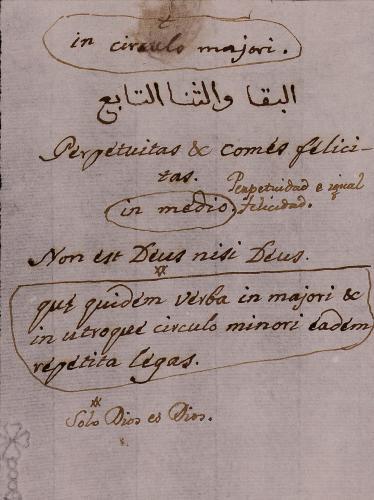 &
in circulo majori.
البقا والثنا التابع
Perpetuitas & comes felici-
tas.
Perpetuidad e igual
felicidad.
in medio.
Non est Deus nisi Deus.
xx
quę quidem verba in majori &
in utroque circulo minori eadem
repetita legas.
xx
Solo Dios es Dios.